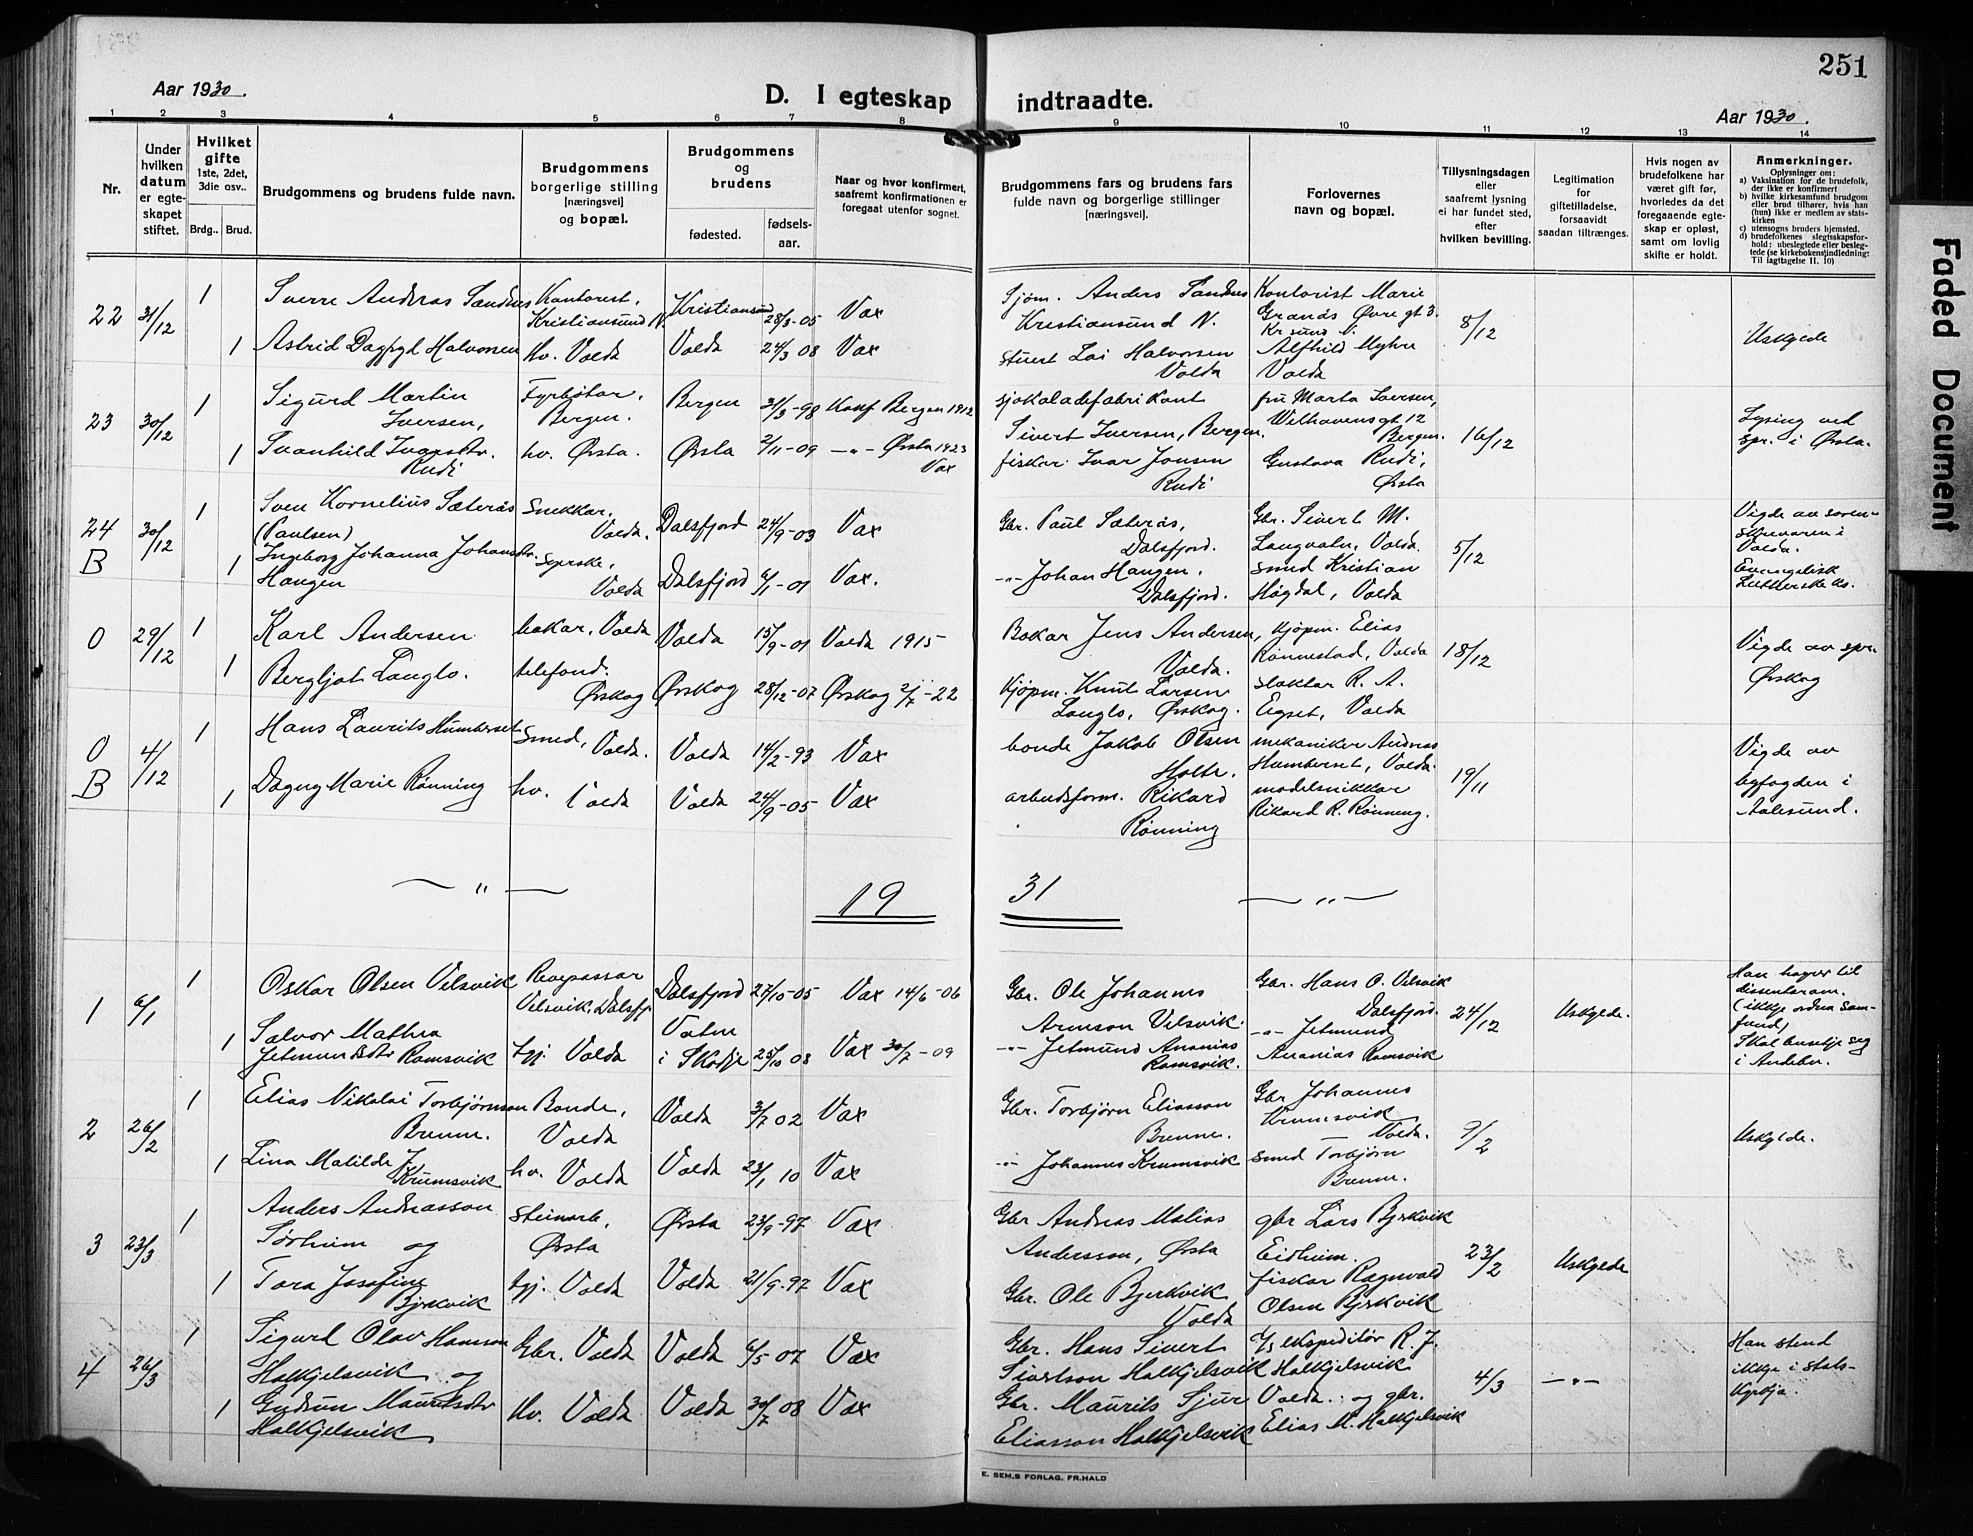 251
Aar 1930.
D. I egteskap indtraadte.
Aar 1930.
1 2 3 4 5 6 7 8 9 10 11 12 13 14
Nr.
Under hvilken datum er egte-skapet stiftet.
Hvilket gifte 1ste, 2det, 3die osv..
Brdg.. Brud.
Brudgommens og brudens fulde navn.
Brudgommens borgerlige stilling [næringsvei] og bopæl.
Brudgommens og brudens
fødested.
fødsels-aar.
Naar og hvor konfirmert, saafremt konfirmationen er foregaat utenfor sognet.
Brudgommens fars og brudens fars fulde navn og borgerlige stillinger [næringsvei].
Forlovernes navn og bopæl.
Tillysningsdagen eller saafremt lysning ei har fundet sted, efter hvilken bevilling.
Legitimation for giftetilladelse, forsaavidt saadan tiltrænges.
Hvis nogen av brudefolkene har været gift før, hvorledes da det foregaaende egte-skap er opløst, samt om lovlig skifte er holdt.
Anmerkninger.
Oplysninger om:
a) Vaksination for de brudefolk, der ikke er konfirmert
b) hvilke kirkesamfund brudgom eller brud tilhører, hvis han (hun) ikke er medlem av stats-kirken
c) utensogns bruders hjemsted.
d) brudefolkenes slegtsskapsfor-hold: ubeslegtede eller besleg-tede (se kirkebokens indledning: Til iagttagelse II. 10)
22 31/12 1 Sverre Andreas Sandnes Kontorist, Kristiansund N. Kristiansund 28/3-05 Vax
Sjøm. Anders Sandnes Kristiansund N. Kontorist Marie Granås Øvre gt 3. Kr sund N. 8/12 Uskylde
1 Astrid Dagny Halvorsen Hv. Volda Volda 24/3 08 Vax
stuert Halvorsen Volda Alfhild Myhre Volda
23 30/12 1 Sigurd Martin Iversen, Fyrbøtar, Bergen. Bergen 31/3-98 Konf Bergen 1912
sjokoladefabrikant Sivert Iversen, Bergen. fru Marta Iversen, Welhavensgt 12 Bergen. 16/12 Lysing ved spr. i Ørsta.
1 Svanhild Ivarsdtr. Rudi hv. Ørsta. Ørsta 2/11-09 -"- Ørsta 1923 Vax
fiskar Ivar Jonsen Rudi Gustava Rudi, Ørsta
24 B 30/12 1 Sven Kornelius Sæterås (Paulsen) Snekkar, Volda. Dalsfjord 24/9-03 Vax
Gbr. Paul Sæterås, Dalsfjord. Gbr. Sivert M. Langvatn, Volda. 5/12 Vigde av soren-skrivaren i Volda. Evangelisk Lutherske
1 Ingeborg Johanna Johansdtr. Haugen Syerske, Volda Dalsfjord 6/1-01 Vax.
-"- Johan Haugen, Dalsfjord. smed Kristian Høgdal, Volda
0 29/12 1 Karl Andersen bakar, Volda Volda 15/9-01 Volda 1915
Bakar Jens Andersen, Volda. Kjøpm. Elias Rønnestad, Volda 18/12 Vigde av spr. Ørskog
1 Bergljot Langlo. telefond. Ørskog Ørskog 28/12-07 Ørskog 2/7-22
Kjøpm. Knut Larsen Langlo, Ørskog. slaktar R. A. Eigset, Volda
0 B 4/12 1 Hans Laurits Humberset Smed, Volda. Volda 14/2-93 Vax
bonde Jakob Olsen Holte. mekaniker Andreas Humberset, Volda. 19/11 Vigde av byfogden i Aalesund.
1 Dagny Marie Rønning hv. Volda Volda 24/9-05 Vax
arbeidsform. Rikard Rønning modelsnikkar Rikard R. Rønning.
— " — 19 31 — " —
1 6/1 1 Oskar Olsen Velsvik Revepassar Velsvik, Dalsfj. Dalsfjord 27/10-05 Vax 14/6-06
Gbr. Ole Johannes Arneson Velsvik. Gbr. Hans O. Velsvik Dalsfjord. 24/12 Uskylde. Han høyrer til dissentaram. (ikkje ordna sam-fund) Skal busetje seg i Andebu.
1 Salvor Mathea Jetmundsdtr Ramsvik tgj. Volda Vatne i Skodje 25/10 08 Vax 30/7-09
-"- Jetmund Ananias Ramsvik. -"- Jetmund Ananias Ramsvik
2 26/2 1 Elias Nikolai Torbjørnson Brenne. Bonde, Volda Volda 3/7 02 Vax
Gbr. Torbjørn Eliasson Brenne. Gbr Johannes Krumsvik Volda. 9/2 Uskylde.
1 Lina Matilde J. Krumsvik hv. Volda Volda 23/1 10 Vax
-"- Johannes Krumsvik smed Torbjørn Brenne.
3 23/3 1 Anders Andreasson Sørheim og Steinarb, Ørsta Ørsta 23/9-97 Vax
Gbr Andreas Malias Andersson, Ørsta gbr Lars Bjrkvik Eidheim. 23/2 Uskylde
1 Tora Josefine Bjrkvik tgj. Volda Volda 21/9-97 Vax
Gbr. Ole Bjerkvik Volda fiskar Ragnvald Olsen Bjrkvik
4 26/3 1 Sigurd Olav Hansson Halkjelsvik og Gbr. Volda Volda 6/5 07 Vax
Gbr. Hans Sivert Sivertson Halkjelsvik ekspeditør R. J. Halkjelsvik Volda. og gbr. 4/3 -"- Han stend ikkje i stats-kyrkja.
1 Gudrun Mauritsdtr Halkjelsvik Hv. Volda Volda 30/7 08 Vax
Gbr. Maurits Sjur Eliasson Halkjelsvik Elias M. Halkjelsvik
E. SEM,S FORLAG, FR.HALD
Faded Document